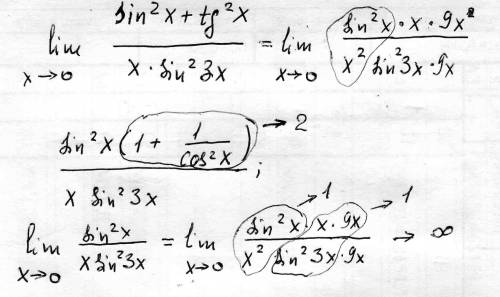 lim x→0 (sin²x + tg²x) / (x · sin²3x) = lim x→0 (sin²x · x · 9x²) / (x² sin²3x · 9x)
sin²x (1 + 1/cos²x) → 2 / (x sin²3x) ;
lim x→0 sin²x / (x sin²3x) = lim x→0 (sin²x · x · 9x) / (x² sin²3x · 9x) → 1 → 1 → ∞